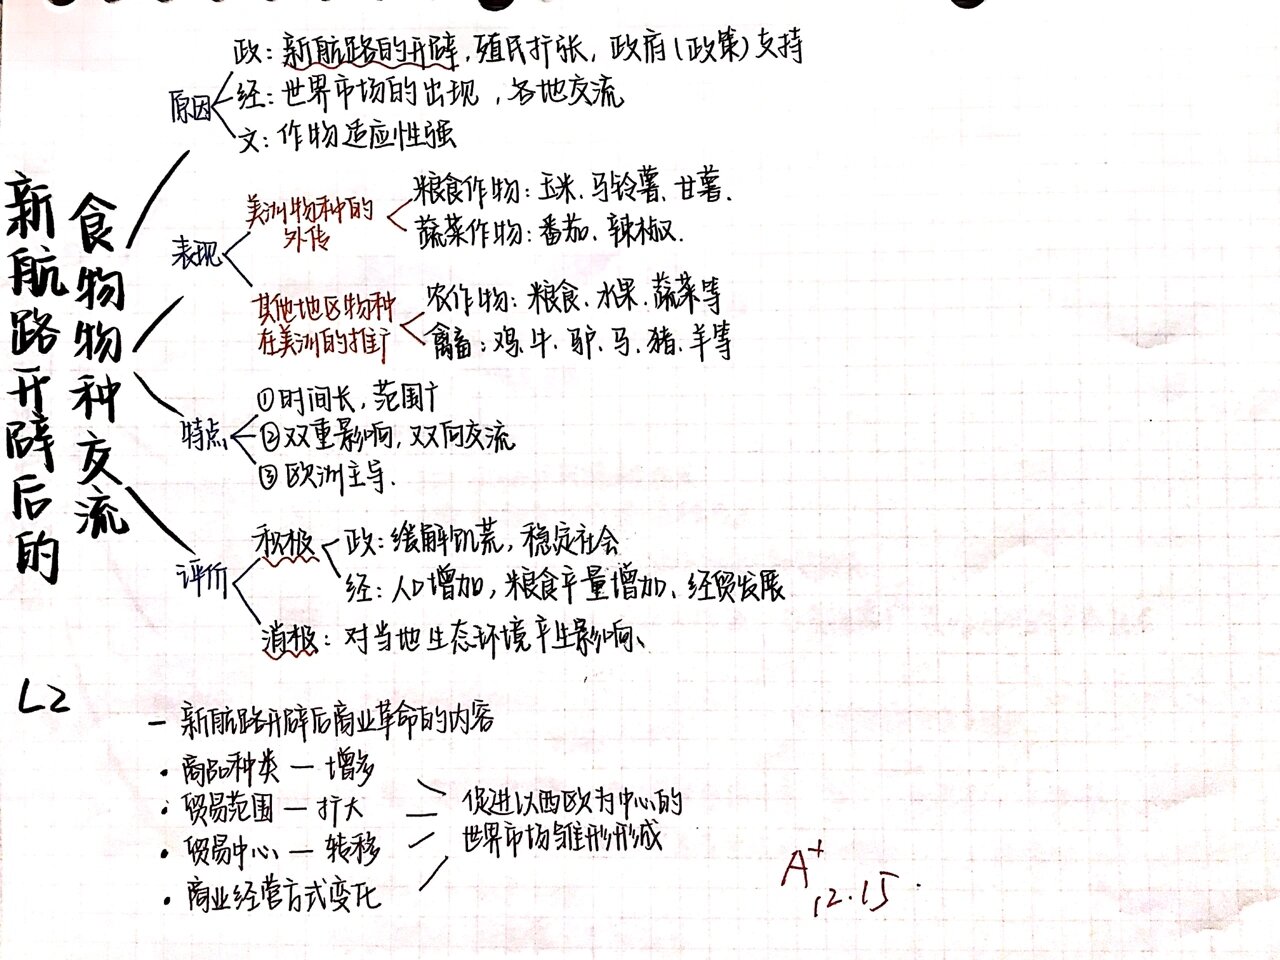 新航路开辟后的
食物物种交流
L2
原因
政：新航路的开辟，殖民扩张，政府（政策）支持
经：世界市场的出现，各地交流
文：作物适应性强
表现
美洲物种的
外传
粮食作物：玉米、马铃薯、甘薯.
蔬菜作物：番茄、辣椒.
其他地区物种
在美洲的推广
农作物：粮食、水果、蔬菜等
禽畜：鸡、牛、驴、马、猪、羊等
特点
①时间长，范围广
②双重影响，双向交流
③欧洲主导.
评价
积极
政：缓解饥荒，稳定社会
经：人口增加，粮食产量增加、经贸发展
消极：对当地生态环境产生影响、
一 新航路开辟后商业革命的内容
·商品种类 — 增多
·贸易范围 — 扩大
·贸易中心 — 转移
·商业经营方式变化
促进以西欧为中心的
世界市场雏形形成
A+
12.15.